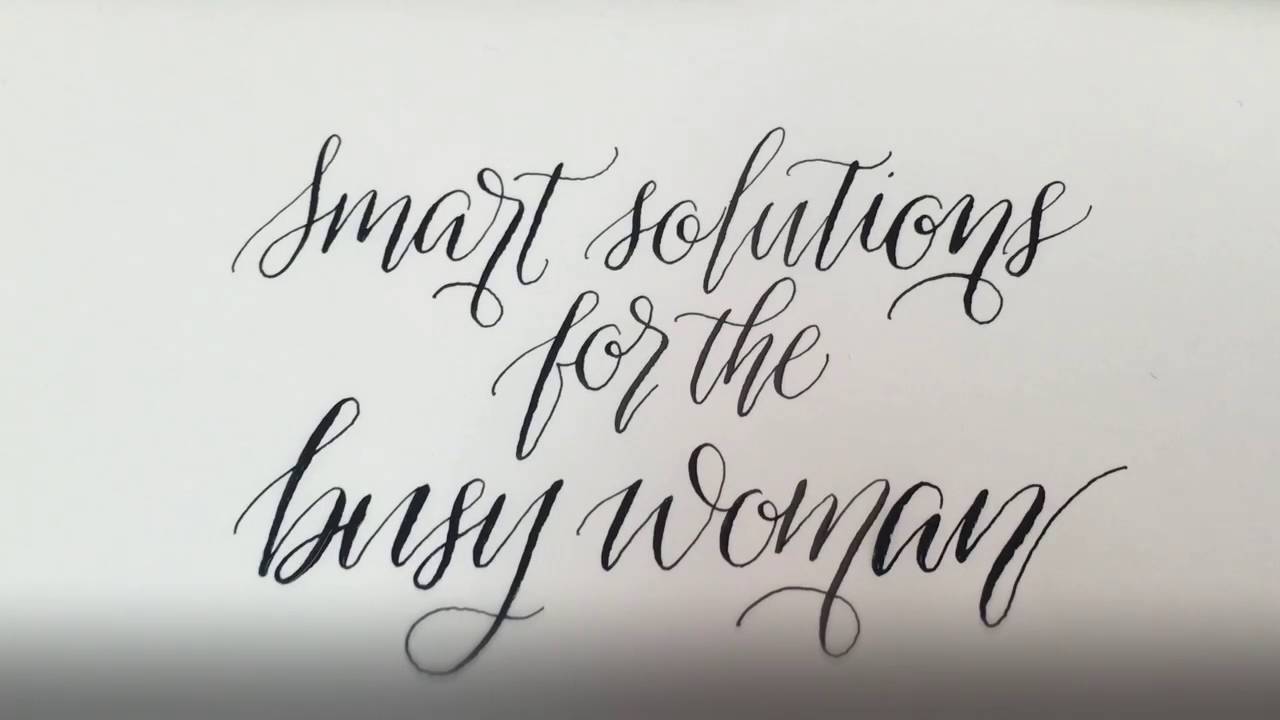 smart solutions
for the
busy woman